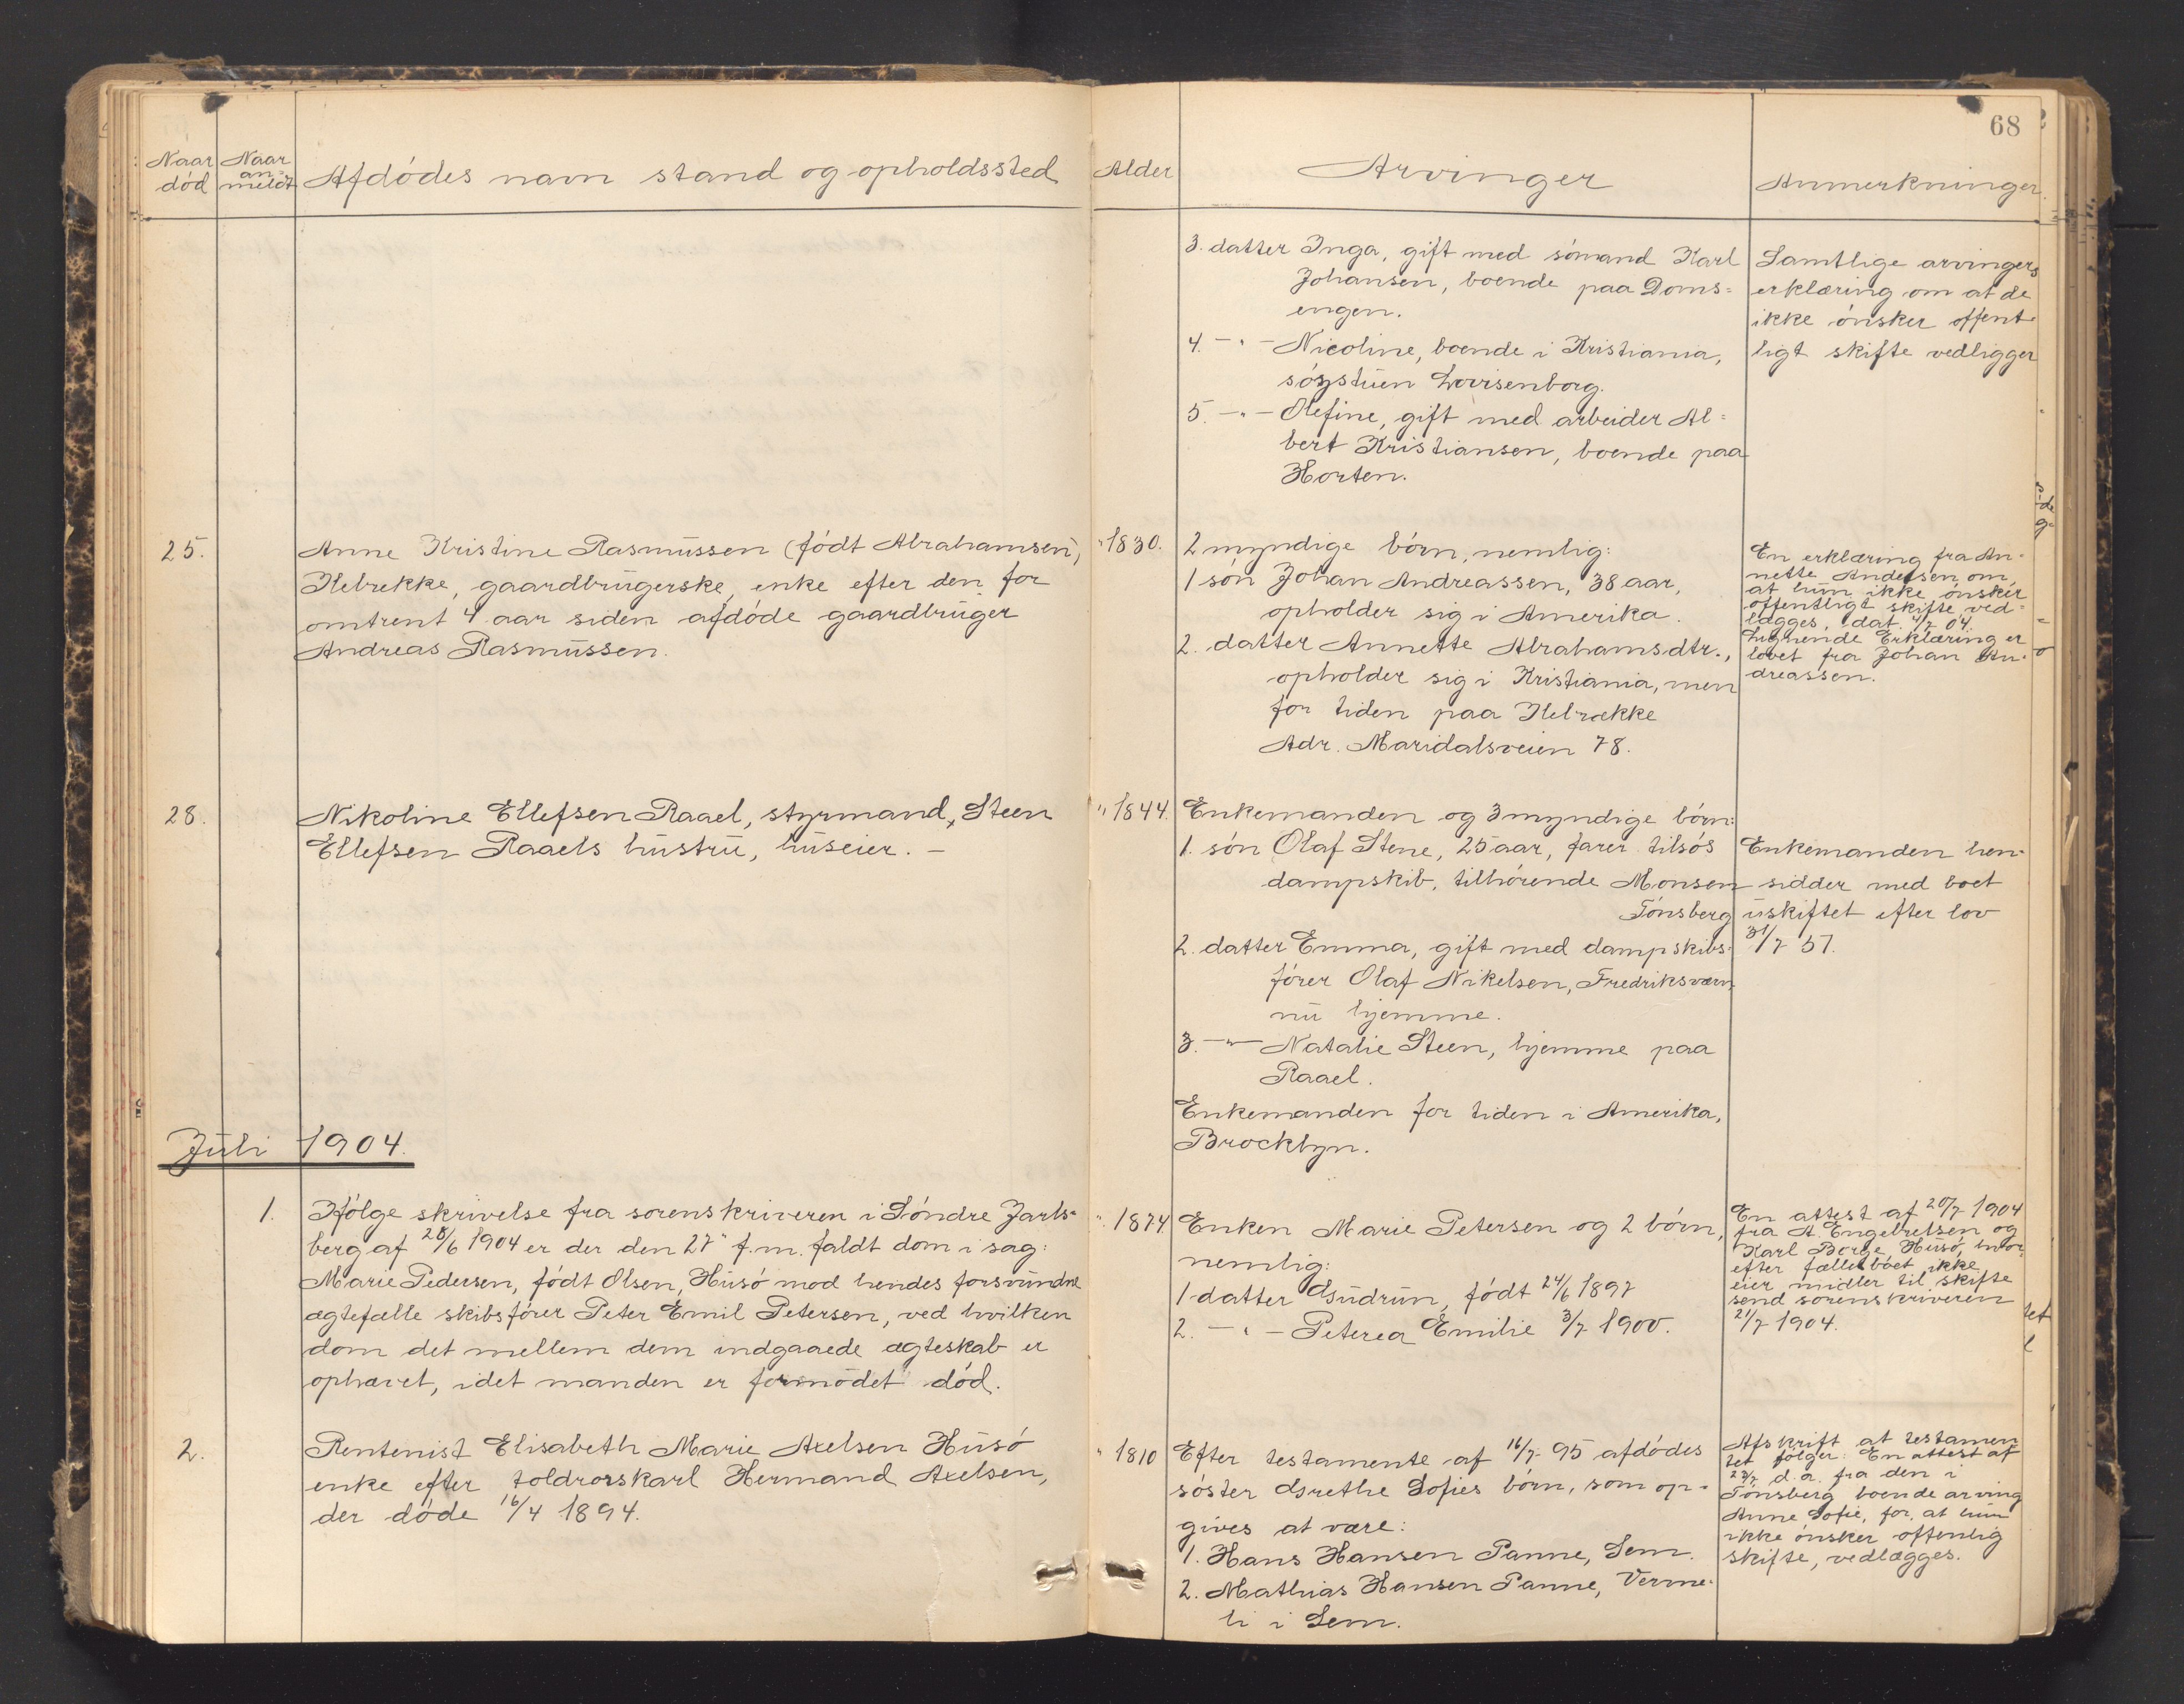 68
Naar død
Naar an= meldt
Afdødes navn stand og opholdssted
Alder
Arvinger
Anmerkninger
3. datter Inga, gift med sømand Karl
Johansen, boende paa Doms=
engen.
4. - " - Nicoline, boende i Kristiania,
Lovisenborg.
5. - " - Olefine, gift med arbeider Al=
bert Kristiansen, boende paa
Horten.
Samtlige arvingers
erklæring om at de
ikke ønsker offent
ligt skifte vedligger
25.
Anne Kristine Rasmussen (født Abrahamsen),
Ilebrekke, gaardbrugerske, enke efter den for
omtrent 4 aar siden afdøde gaardbruger
Andreas Rasmussen.
" 1830.
2 myndige børn, nemlig:
1 søn Johan Andreassen, 38 aar,
opholder sig i Amerika.
2. datter Annette Abrahamsdtr.,
opholder sig i Kristiania, men
for tiden paa Ilebrække
Adr. Maridalsveien 78.
En erklæring fra An=
nette Andersen om,
at hun ikke ønsker
offentligt skifte ved=
lægges, dat. 4/7 04.
Lignende Erklæring er
lovet fra Johan An=
dreassen.
28.
Nikoline Ellefsen Raael, styrmand, Steen
Ellefsen Raaels hustru, huseier. -
" 1844.
Enkemanden og 3 myndige børn:
1. søn Olaf Stene, 25 aar, farer tilsøs
dampskib, tilhørende Monsen
Tønsberg
2. datter Emma, gift med dampskibs=
fører Olaf Nikelsen, Fredriksværn,
nu hjemme.
3. - " - Natalie Steen, hjemme paa
Raael.
Enkemanden for tiden i Amerika,
Brocklyn.
Enkemanden hen=
sidder med boet
uskiftet efter lov
31/7 51.
Juli 1904.
1.
Ifølge skrivelse fra sorenskriveren i Søndre Jarls=
berg af 28/6 1904 er der den 27" f.m. faldt dom i sag:
Marie Pedersen, født Olsen, Husø mod hendes forsvundne
ægtefælle skibsfører Peter Emil Petersen, ved hvilken
dom det mellem dem indgaaede ægteskab er
ophævet, idet manden er formodet død.
" 1874
Enken Marie Petersen og 2 børn,
nemlig:
1 datter Gudrun, født 24/6 1897
2. - " - Peterea Emilie 3/7 1900.
En attest af 20/7 1904
fra A. Engebretsen og
Karl Borge, Husø, hvor=
efter fællesboet ikke
eier midler til skifte
send sorenskriveren
21/7 1904.
2.
Rentenist Elisabeth Marie Axelsen Husø
enke efter toldrorskarl Hermand Axelsen,
der døde 16/4 1894.
" 1810
Efter testamente af 16/7 95 afdødes
søster Grethe Sofies børn, som op=
gives at være:
1. Hans Hansen Panne, Sem.
2. Mathias Hansen Panne, Verme=
li i Sem.
Afskrift at testamen
tet følger: En attest af
23/7 d.a. fra den i
Tønsberg boende arving
Anne Sofie, for, at hun
ikke ønsker offenlig
skifte, vedlægges.